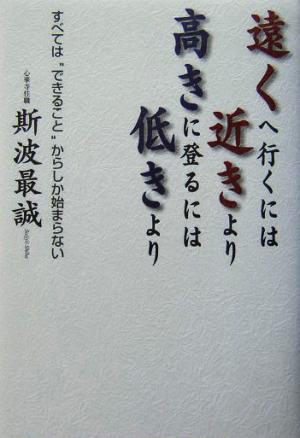 遠くへ行くには
近きより
高きに登るには
低きより
すべては"できること"からしか始まらない
心華寺住職
斯波最誠
Saijo Shiba